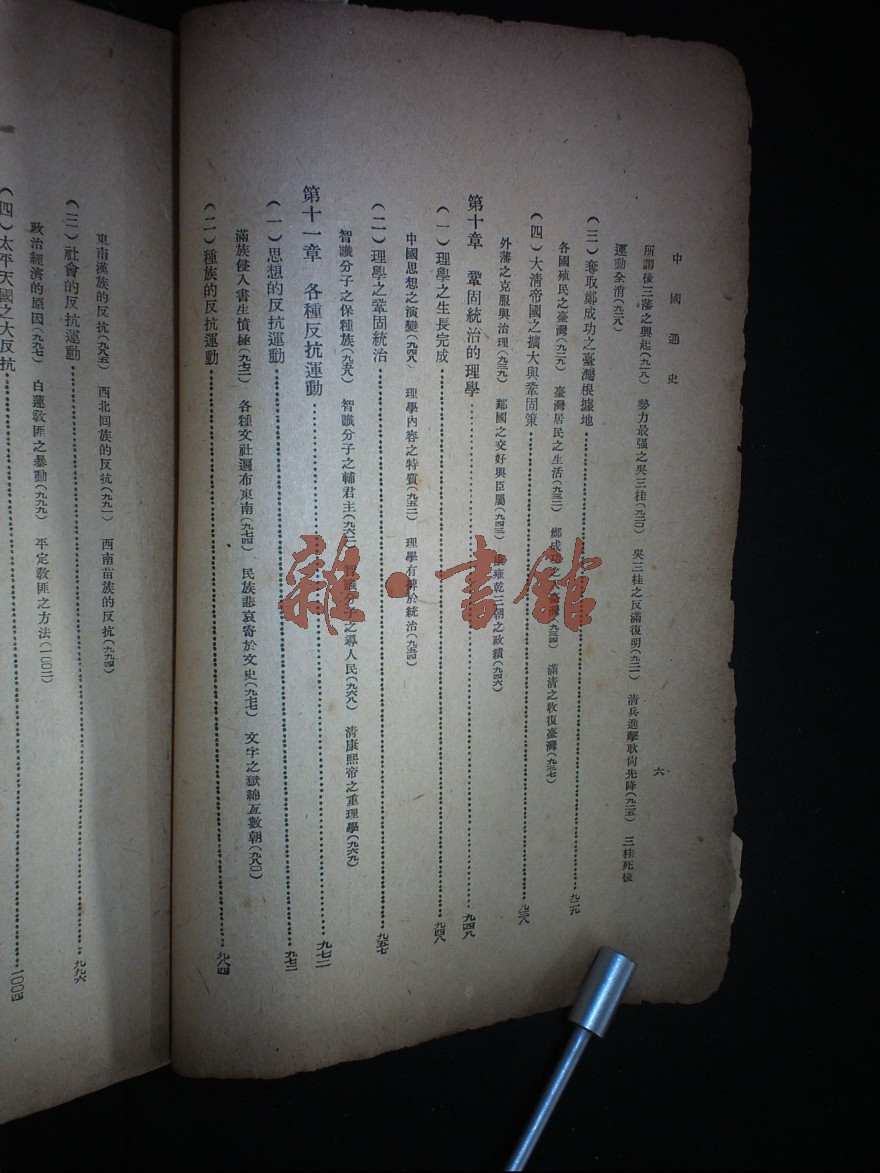 中國通史
六
所謂後三藩之興起(九一八) 勢力最强之吳三桂(九二〇) 吳三桂之反滿復明(九二一) 清兵進擊耿尚先降(九二五) 三桂死後
運動全消(九二八)
(三)奪取鄭成功之臺灣根據地……九二九
各國殖民之臺灣(九二九) 臺灣居民之生活(九三二) 鄭成功之入臺灣(九三四) 滿清之收復臺灣(九三七)
(四)大清帝國之擴大與鞏固策……九三八
外藩之克服與治理(九三九) 鄰國之交好與臣屬(九四三) 康雍乾三朝之政績(九四六)
第十章 鞏固統治的理學……九四八
(一)理學之生長完成……九四八
中國思想之演變(九四八) 理學內容之特質(九五二) 理學有裨於統治(九五四)
(二)理學之鞏固統治……九五七
智識分子之保種族(九五八) 智識分子之輔君主(九六二) 智識分子之導人民(九六八) 清康熙帝之重理學(九六九)
第十一章 各種反抗運動……九七二
(一)思想的反抗運動……九七二
滿族侵入書生憤極(九七二) 各種文社遍布東南(九七四) 民族悲哀寄於文史(九七七) 文字之獄綿亙數朝(九八〇)
(二)種族的反抗運動……九八四
東南漢族的反抗(九八五) 西北回族的反抗(九九一) 西南苗族的反抗(九九四)
(三)社會的反抗運動……九九六
政治經濟的原因(九九七) 白蓮教匪之暴動(九九九) 平定教匪之方法(一〇〇二)
(四)太平天國之大反抗……一〇〇四
雜·書館